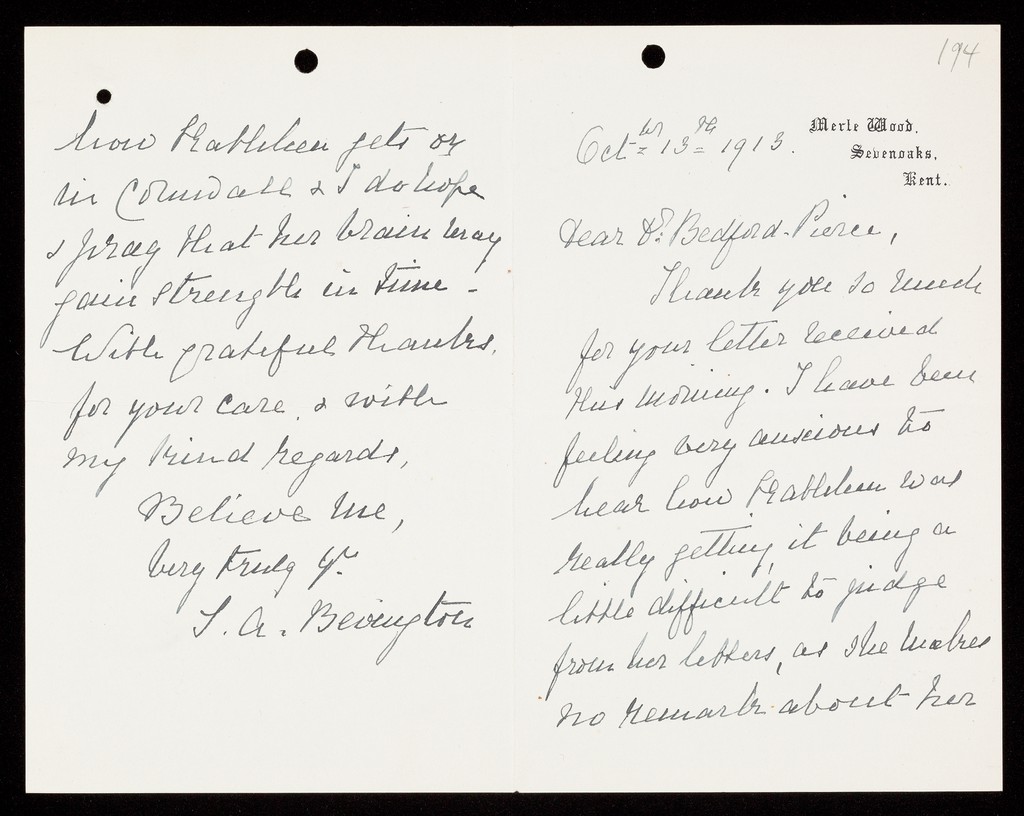 194
Merle Wood,
Sevenoaks,
Kent.
Octbr 13th 1913.
Dear Dr. Bedford-Pierce,
Thank you so much
for your letter received
this morning. I have been
feeling very anxious to
hear how Kathleen was
really getting, it being a
little difficult to judge
from her letters, as she makes
no remark about her
how Kathleen gets on
in Cornwall & I do hope
& pray that her brain may
gain strength in time -
With grateful thanks,
for your care, & with
my kind regards,
Believe me,
Very truly yrs
S. A. Bevington